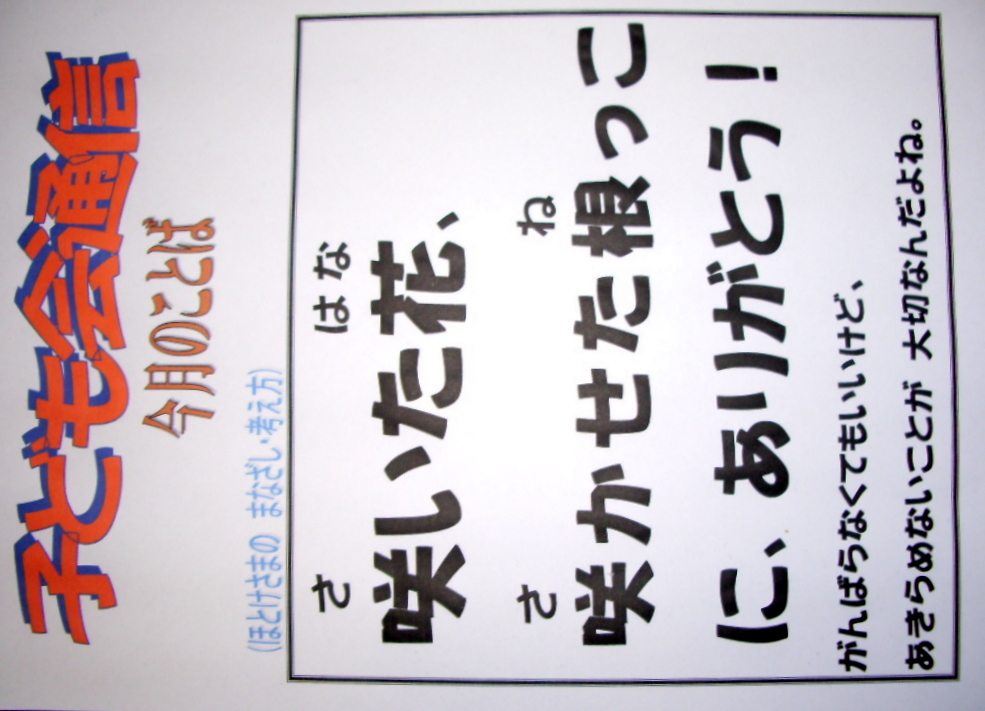 子ども会通信
今月のことば
(ほとけさまの まなざし・考え方)
さ はな
咲いた花、
さ ね
咲かせた根っこ
に、ありがとう!
がんばらなくてもいいけど、
あきらめないことが 大切なんだよね。